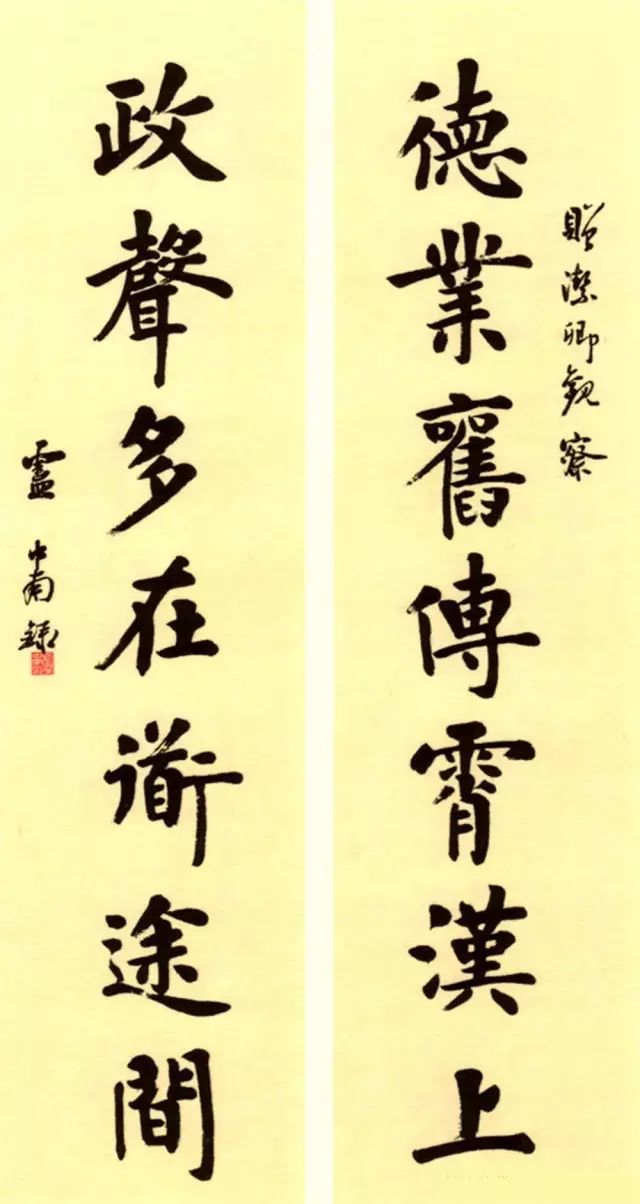 贈潔卿觀察
德業舊傳霄漢上
政聲多在衜途間
盧中南録